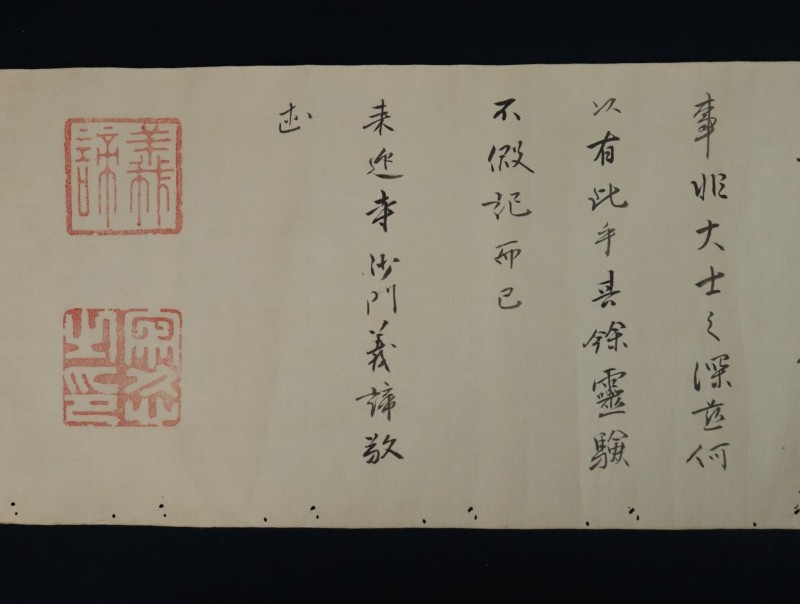 事非大士之深慈何
以有此乎其餘靈驗
不假記而已
来迎寺沙門義諦敬
書
義諦